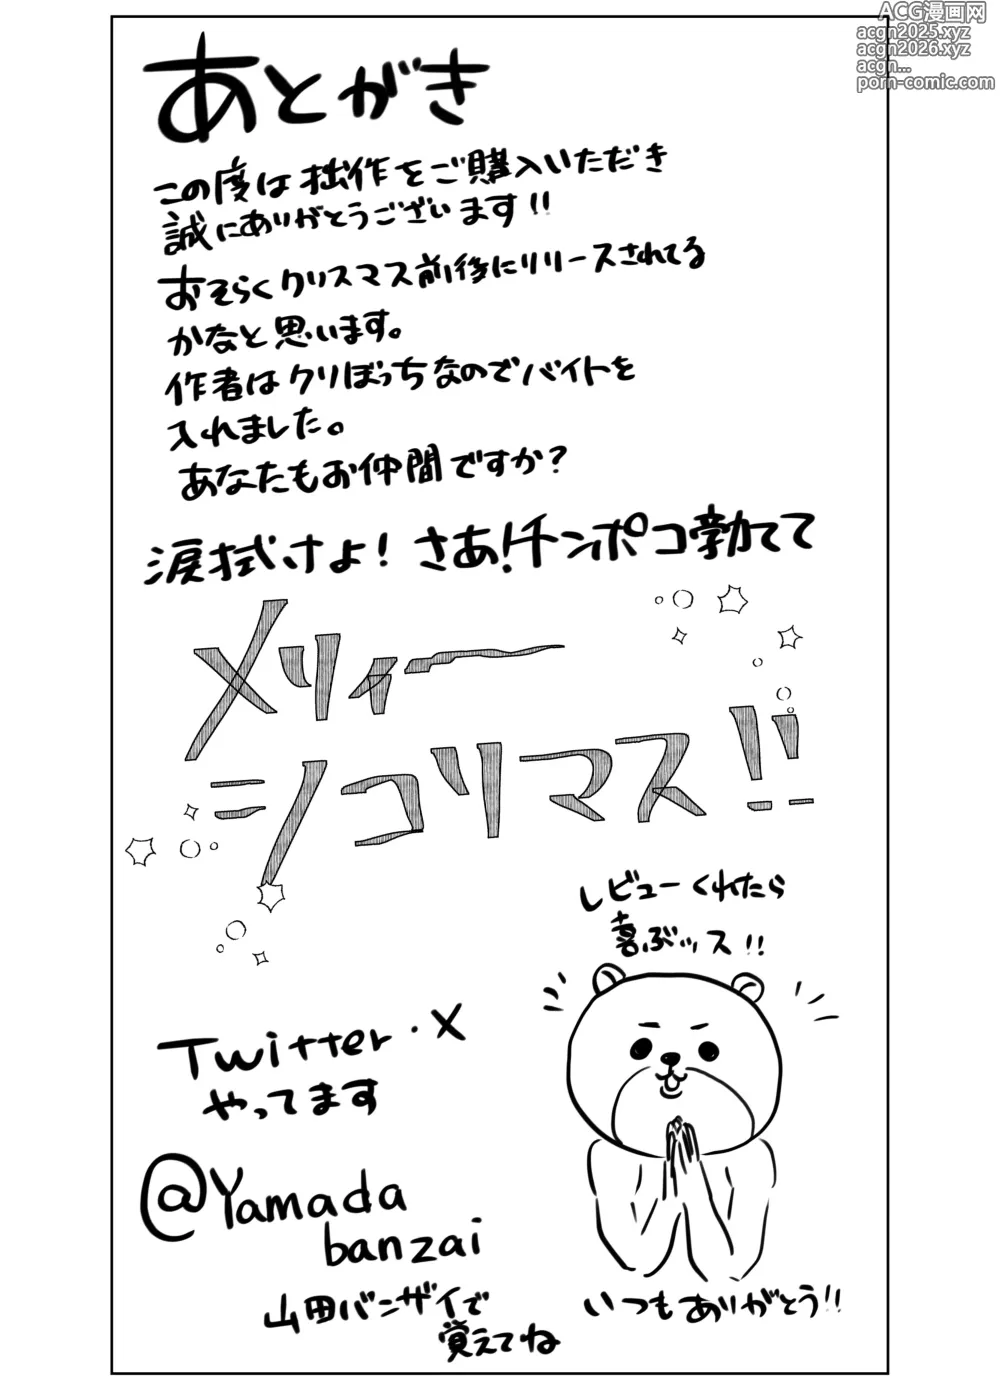 ACG漫画网
acgn2025.xyz
acgn2026.xyz
acgn...
porn-comic.com
あとがき
この度は拙作をご購入いただき
誠にありがとうございます!!
おそらくクリスマス前後にリリースされてる
かなと思います。
作者はクリぼっちなのでバイトを
入れました。
あなたもお仲間ですか?
涙拭けよ!さあ!チンポコ勃てて
メリィー
シコリマス!!
レビューくれたら
喜ぶッス!!
Twitter・X
やってます
@Yamada
banzai
山田バンザイで
覚えてね
いつもありがとう!!